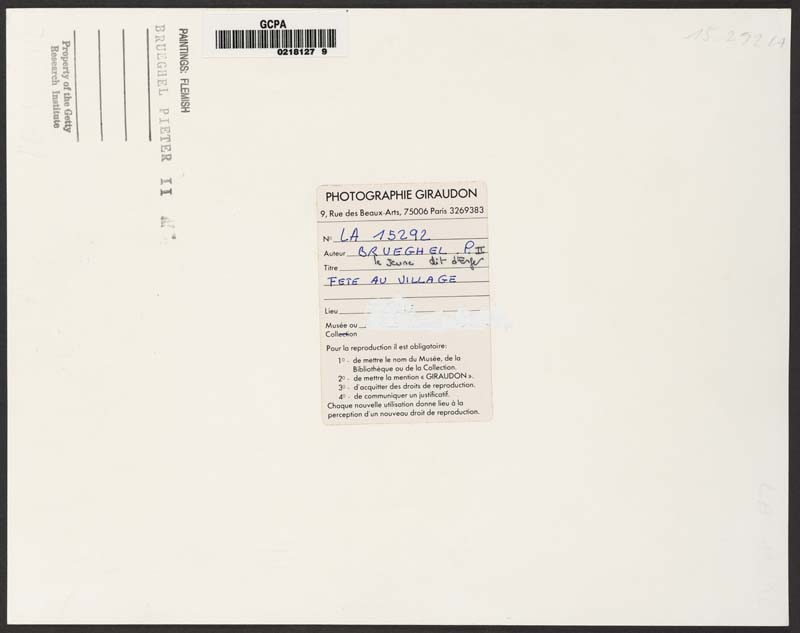 GCPA
0218127 9
15292 LA
PAINTINGS: FLEMISH
BRUEGHEL PIETER II
Property of the Getty
Research Institute
PHOTOGRAPHIE GIRAUDON
9, Rue des Beaux-Arts, 75006 Paris 3269383
No LA 15292
Auteur BRUEGHEL P. II
le Jeune dit d'Enfer
Titre
FETE AU VILLAGE
Lieu
Musée ou
Collection
Pour la reproduction il est obligatoire:
1o - de mettre le nom du Musée, de la
Bibliothèque ou de la Collection.
2o - de mettre la mention « GIRAUDON ».
3o - d'acquitter des droits de reproduction.
4o - de communiquer un justificatif.
Chaque nouvelle utilisation donne lieu à la
perception d'un nouveau droit de reproduction.